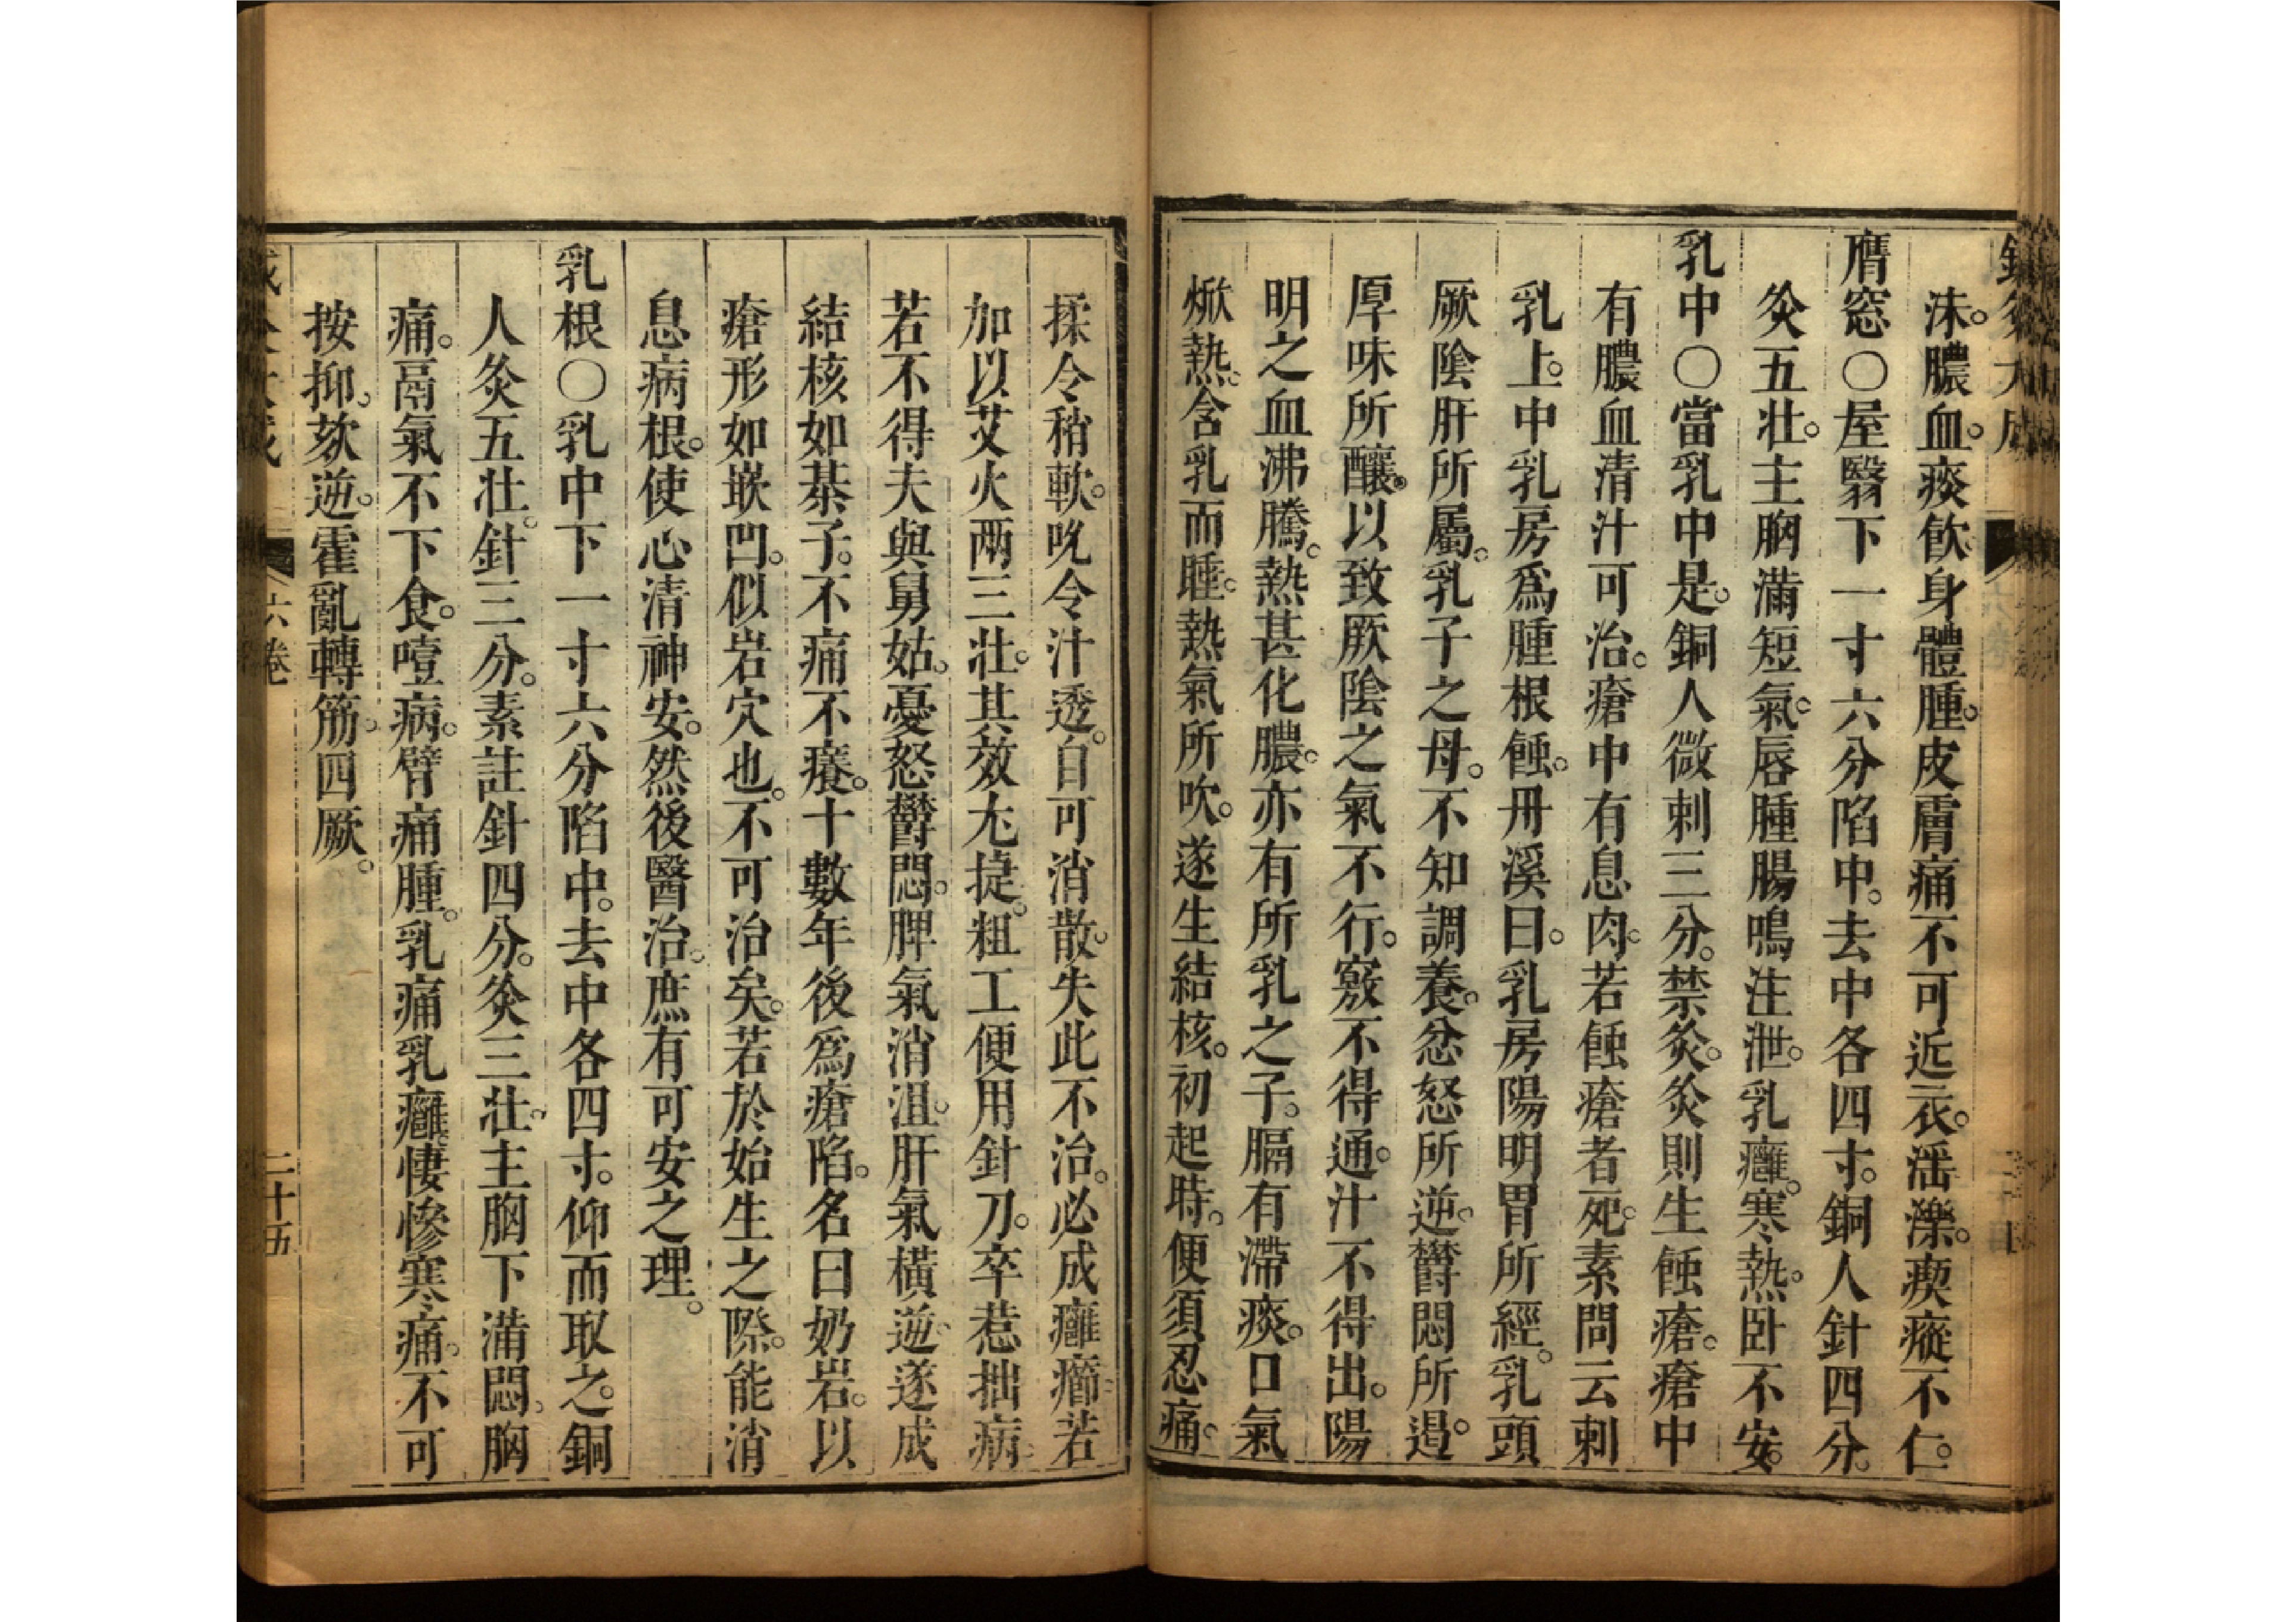 沫。膿血。痰飲。身體腫。皮膚痛不可近衣。淫濼。瘈瘲不仁。
膺窓〇屋翳下一寸六分陷中。去中各四寸。銅人針四分。
灸五壯。主胸滿短氣。唇腫腸鳴注泄。乳癰。寒熱。卧不安。
乳中〇當乳中是。銅人微刺三分。禁灸。灸則生蝕瘡。瘡中
有膿血清汁可治。瘡中有息肉。若蝕瘡者死。素問云刺
乳上。中乳房爲腫根蝕。丹溪曰。乳房陽明胃所經。乳頭
厥陰肝所屬。乳子之母。不知調養。忿怒所逆。鬱悶所遏。
厚味所釀。以致厥陰之氣不行。竅不得通。汁不得出。陽
明之血沸騰。熱甚化膿。亦有所乳之子。膈有滯痰。口氣
焮熱。含乳而睡。熱氣所吹。遂生結核。初起時。便須忍痛。
揉令稍軟。吮令汁透。自可消散。失此不治。必成癰癤。若
加以艾火兩三壯。其效尤捷。粗工便用針刀。卒惹拙病。
若不得夫與舅姑。憂怒鬱悶。脾氣消沮。肝氣橫逆。遂成
結核如棊子。不痛不癢。十數年後爲瘡陷。名曰奶岩。以
瘡形如嵌凹。似岩穴也。不可治矣。若於始生之際。能消
息病根。使心清神安。然後醫治。庶有可安之理。
乳根〇乳中下一寸六分陷中。去中各四寸。仰而取之。銅
人灸五壯。針三分。素註針四分。灸三壯。主胸下滿悶。胸
痛。鬲氣不下食。噎病。臂痛腫。乳痛乳癰。悽慘寒痛。不可
按抑。欬逆。霍亂轉筋。四厥。
六卷
二十五